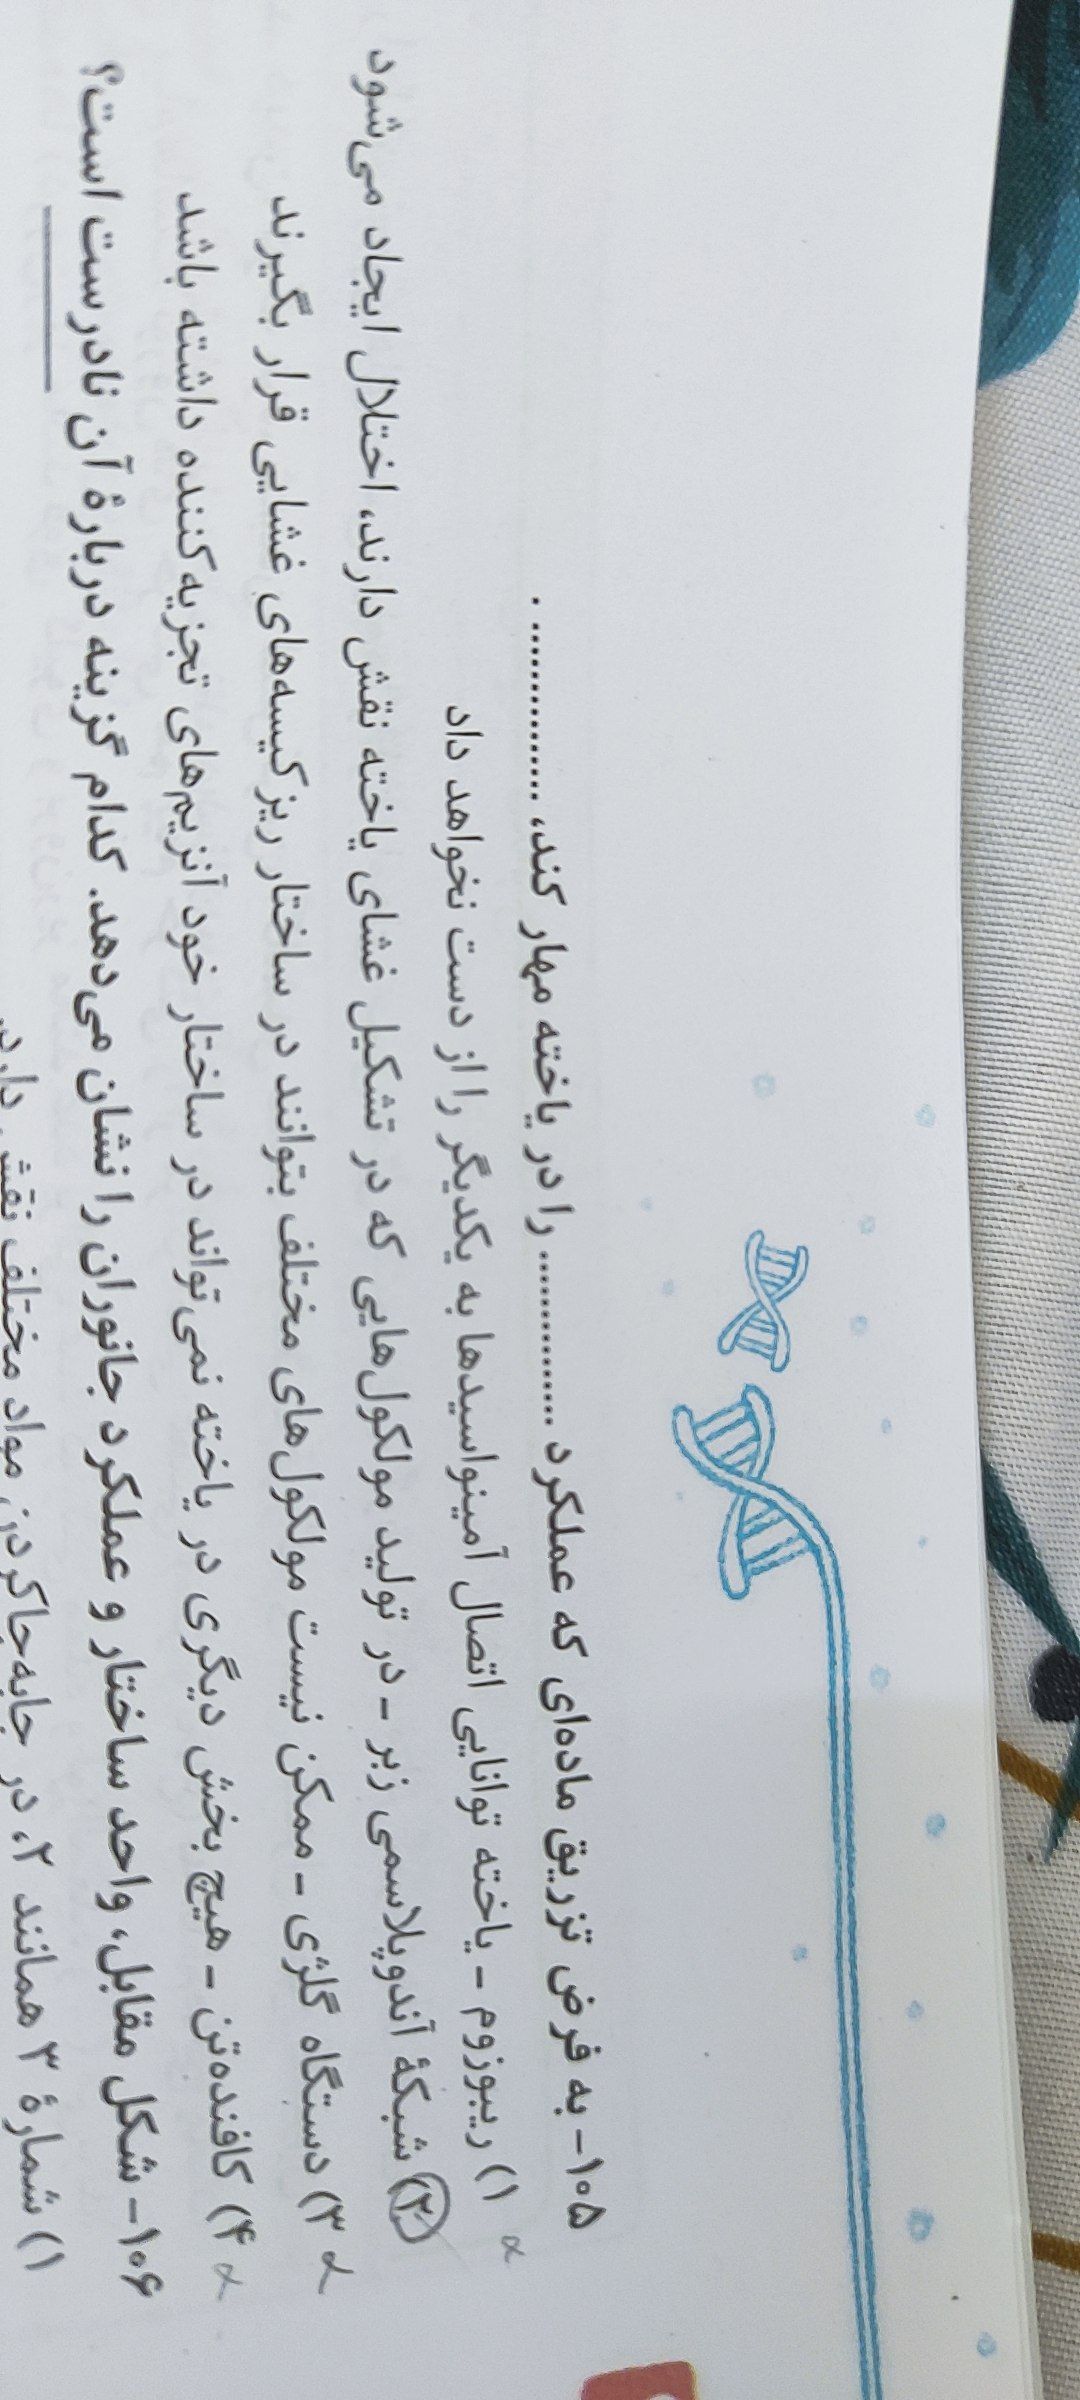 ۱۰۵- به فرض تزریق ماده‌ای که عملکرد .............. را در یاخته مهار کند، .............. .
۱) ریبوزوم - یاخته توانایی اتصال آمینواسیدها به یکدیگر را از دست نخواهد داد
۲) شبکهٔ آندوپلاسمی زبر - در تولید مولکول‌هایی که در تشکیل غشای یاخته نقش دارند، اختلال ایجاد می‌شود
۳) دستگاه گلژی - ممکن نیست مولکول‌های مختلف بتوانند در ساختار ریزکیسه‌های غشایی قرار بگیرند
۴) کافنده‌تن - هیچ بخش دیگری در یاخته نمی‌تواند در ساختار خود آنزیم‌های تجزیه‌کننده داشته باشد
۱۰۶- شکل مقابل، واحد ساختار و عملکرد جانوران را نشان می‌دهد. کدام گزینه دربارهٔ آن نادرست است؟
۱) شمارهٔ ۳ همانند ۲، در جابه‌جا کردن مواد مختلف نقش دارد.